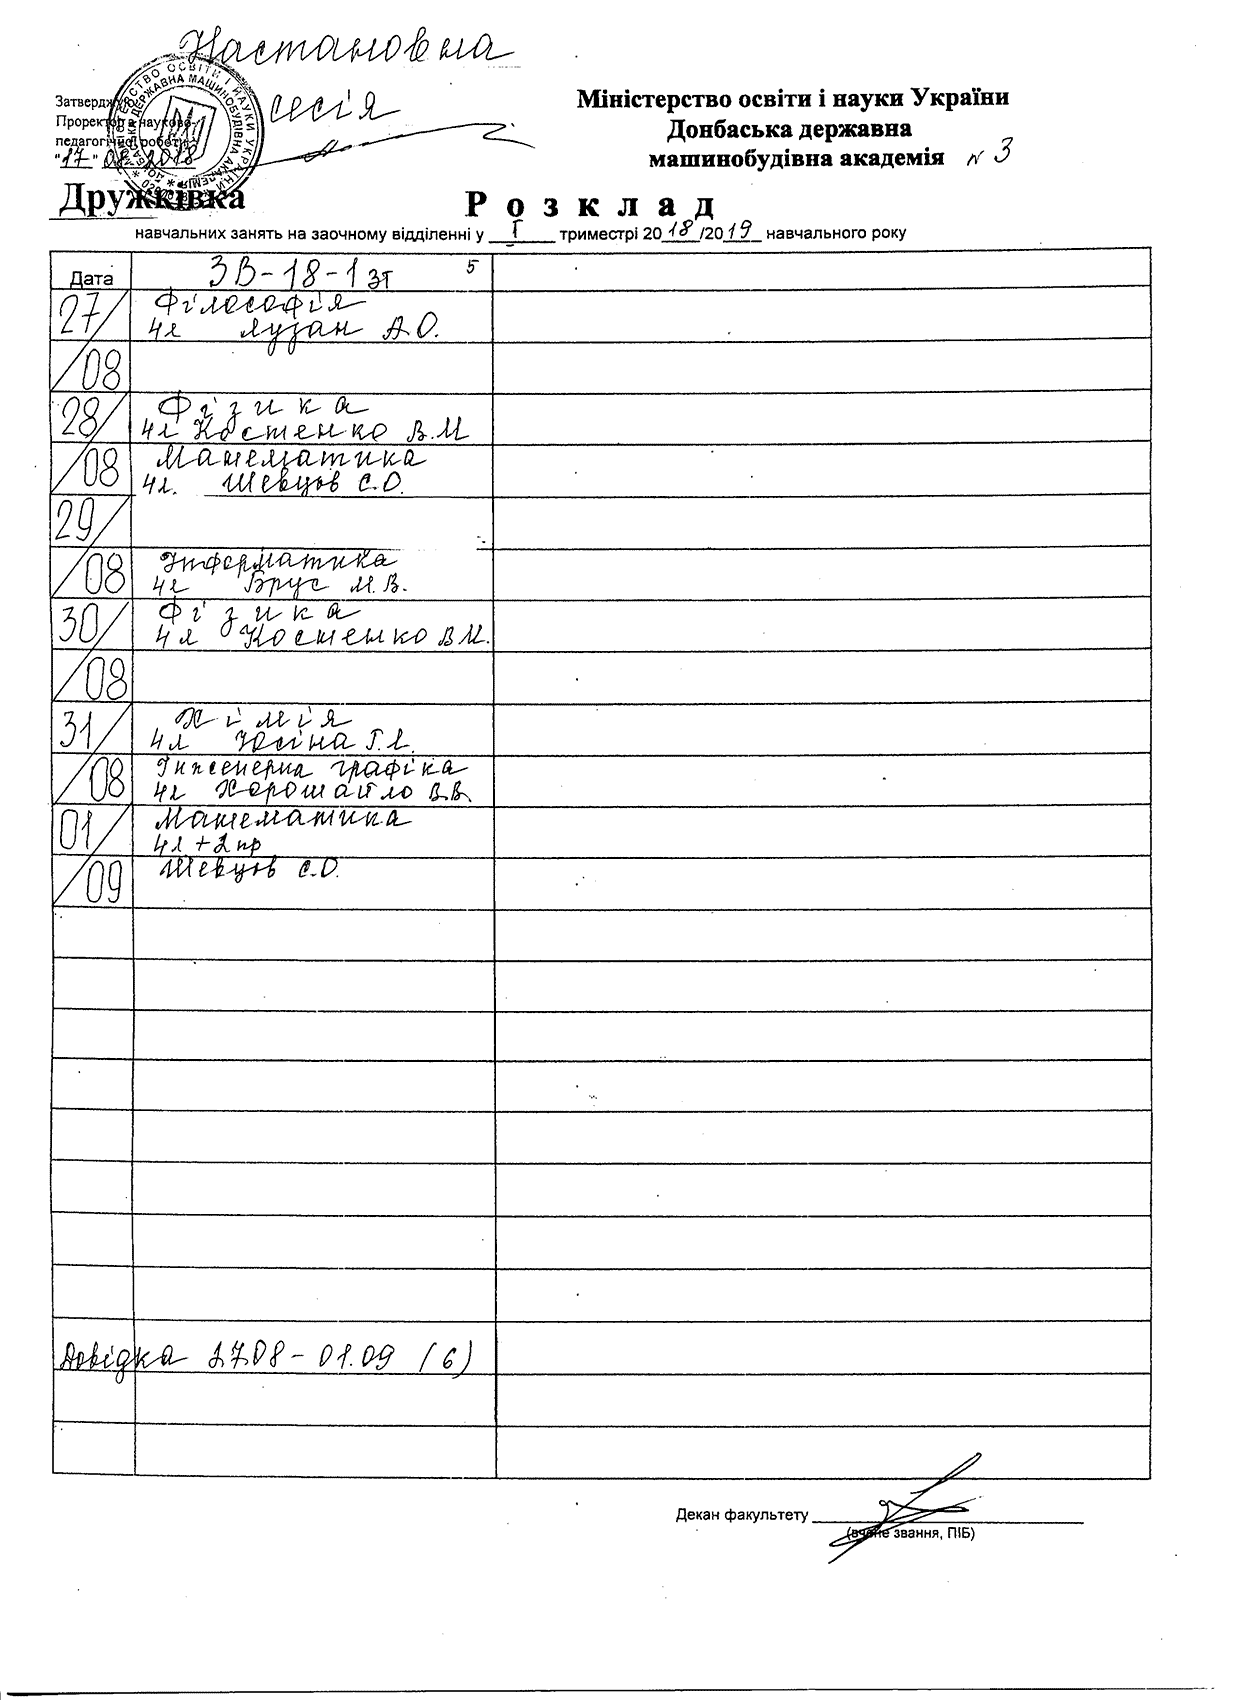 Настановна
сесія
Затверджую
Проректор з науково-
педагогічної роботи
"17" 08 2018
Міністерство освіти і науки України
Донбаська державна
машинобудівна академія № 3
Дружківка
Розклад
навчальних занять на заочному відділенні у I триместрі 2018/2019 навчального року
Дата ЗВ-18-1зт 5
27/08 Філософія
4л Лузан А.О.
28/08 Фізика
4л Костенко В.М
Математика
4л. Шевцов С.О.
29/08
Інформатика
4л Брус М.В.
30/08 Фізика
4л Костенко В.М.
31/08 Хімія
4л Юсіна Г.Л.
Інженерна графіка
4л Хорошайло В.В.
01/09 Математика
4л + 2пр
Шевцов С.О.
Довідка 27.08 - 01.09 (6)
Декан факультету
(вчене звання, ПІБ)